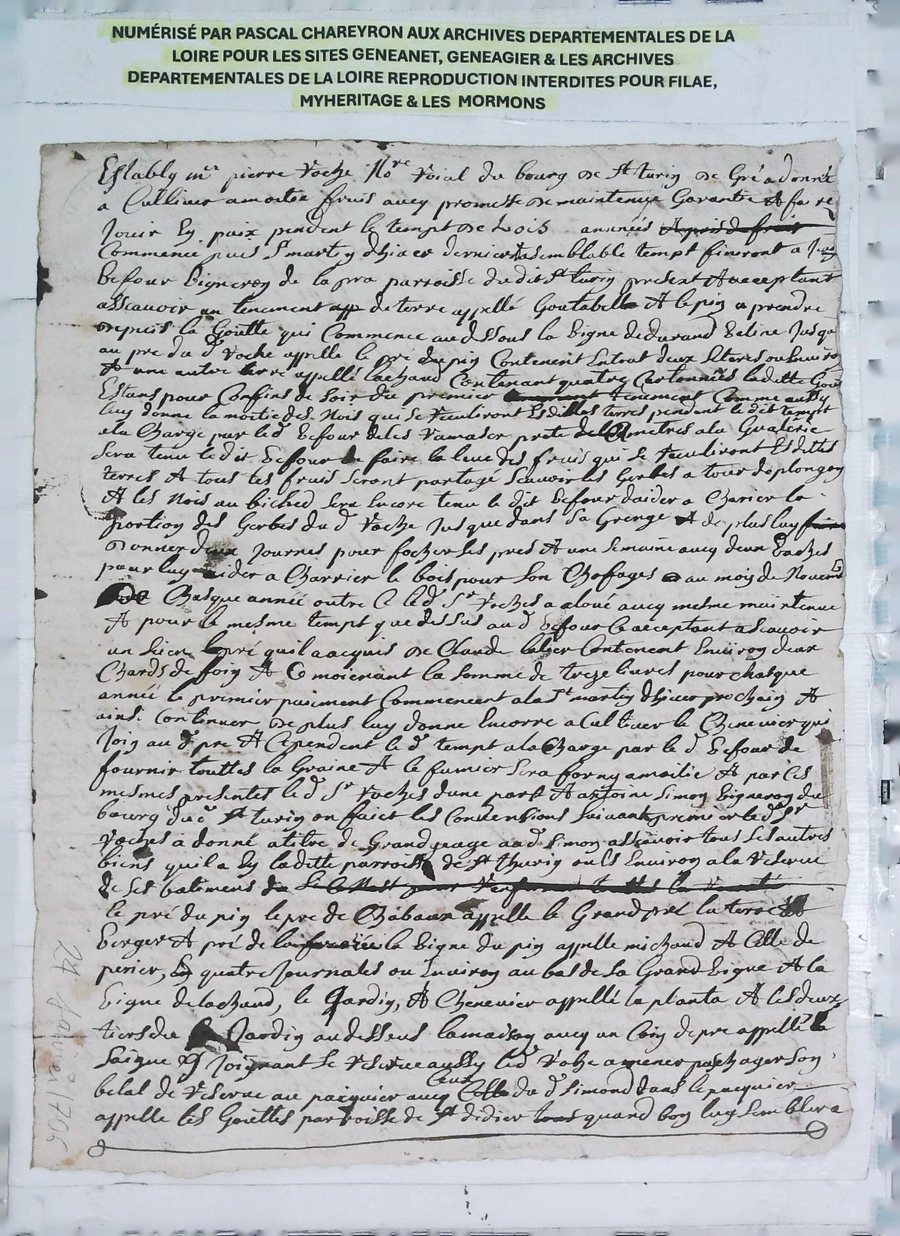 NUMÉRISÉ PAR PASCAL CHAREYRON AUX ARCHIVES DEPARTEMENTALES DE LA
LOIRE POUR LES SITES GENEANET, GENEAGIER & LES ARCHIVES
DEPARTEMENTALES DE LA LOIRE REPRODUCTION INTERDITES POUR FILAE,
MYHERITAGE & LES MORMONS
Estably mre pierre Voche No.re Roial du bourg de St turin de Gré a donné
a Culliver a moitié fruis avec promesse de maintenue Garantie & faire
Jouir en paix pendent le tempt de années
Commencé puis St martin d'hiver dernier & a semblable tempt finiront a
vigneron de la pra parroisse du dit St turin present & acceptant
asscavoir un tenement de terre appellé & le pin a prendre
depuis la Goutte qui Commence au dessous la vigne de durand jusqu
au pre du d. Voche appelle le pré du pin Contenent
& une autre terre appellé lachaud Contenant quatre Cartonnées la ditte
Estans pour Confins de soir du premier tenement Comme aussy
luy donne la moitié des Nois qui se Ceuliront Esdittes terres pendent le dit tempt
a la Charge par led.
sera tenu le dit de faire la leue des fruis qui se Ceuliront Esdittes
terres & tous les fruis seront partage scavoir les Gerbes a
& les Nois au bichet sera Encore tenu le dit d'aider a Charier la
portion des Gerbes du d. Voche Jusque dans sa Grenge & de plus luy
donner deux Journes pour focher les pres & une semaine avec deux Vaches
pour luy aider a Charrier le bois pour son Chofages au mois de Novembre
Chasque année outre Ce le d. Sr Voches a aloué avec mesme maintenue
& pour le mesme tempt que dessus au d. Ce acceptant ascavoir
un sien pré quil a acquis de Claude Contenent Environ deux
Chards de foin & Ce moienant la somme de treze livres pour chasque
année le premier paiment Commencent a la St martin d'hiver prochain &
ainsi Continuer de plus luy donne Encorre a Cultiver le Chenevier qui
Join au d. pre & Cependent le d. tempt a la Charge par le d. de
fournir touttes la Graine & le fumier sera forny a moitié & par les
mesmes presentes le d. Sr Voches dune part & Antoine Simon vigneron du
bourg du d. St turin on faict les Conventions suivantes premier le d. Sr
Voches a donné a titre de Grangeage au d. Simon asscavoir tous ses autres
biens quil a En laditte parroisse de St thurin ou Es Environ a la Reserve
de ses batimens
le pré du pin le pre de Chabaux appelle le Grand pré la terre
verger & pré de la vigne du pin appelle michaud & Celle de
perier, quatre Journales ou Environ au bas de la Grand vigne & la
vigne de lachaud, le Jardin, & Chenevier appellé la planta & les deux
tiers du Jardin au dessous la maison avec un Coin de pre appellé la
Saigne Joignant se Reserve aussy le d. Voche a mener pachager son
betal de Reserve au paquier avec Ceux du d. Simond dans le pacquier
appelle les Gouttes parroisse de St didier quand bon luy semblera
24 Janvier 1706